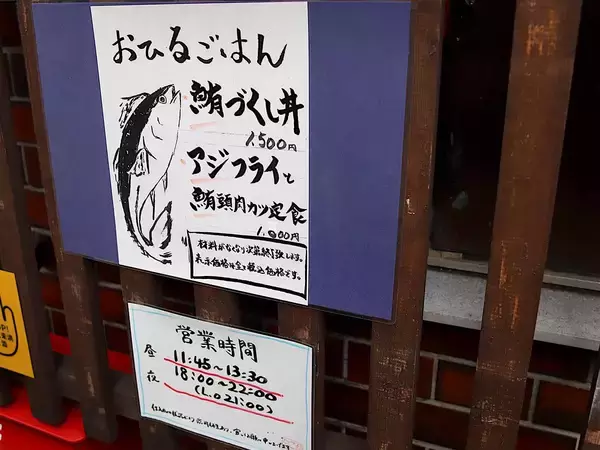 おひるごはん
鮪づくし丼
1,500円
アジフライと
鮪頭肉カツ定食
1,000円
材料がなくなり次第終了致します。
表示価格は全て税込価格です。
営業時間
昼 11:45～13:30
夜 18:00～22:00
(L.O 21:00)